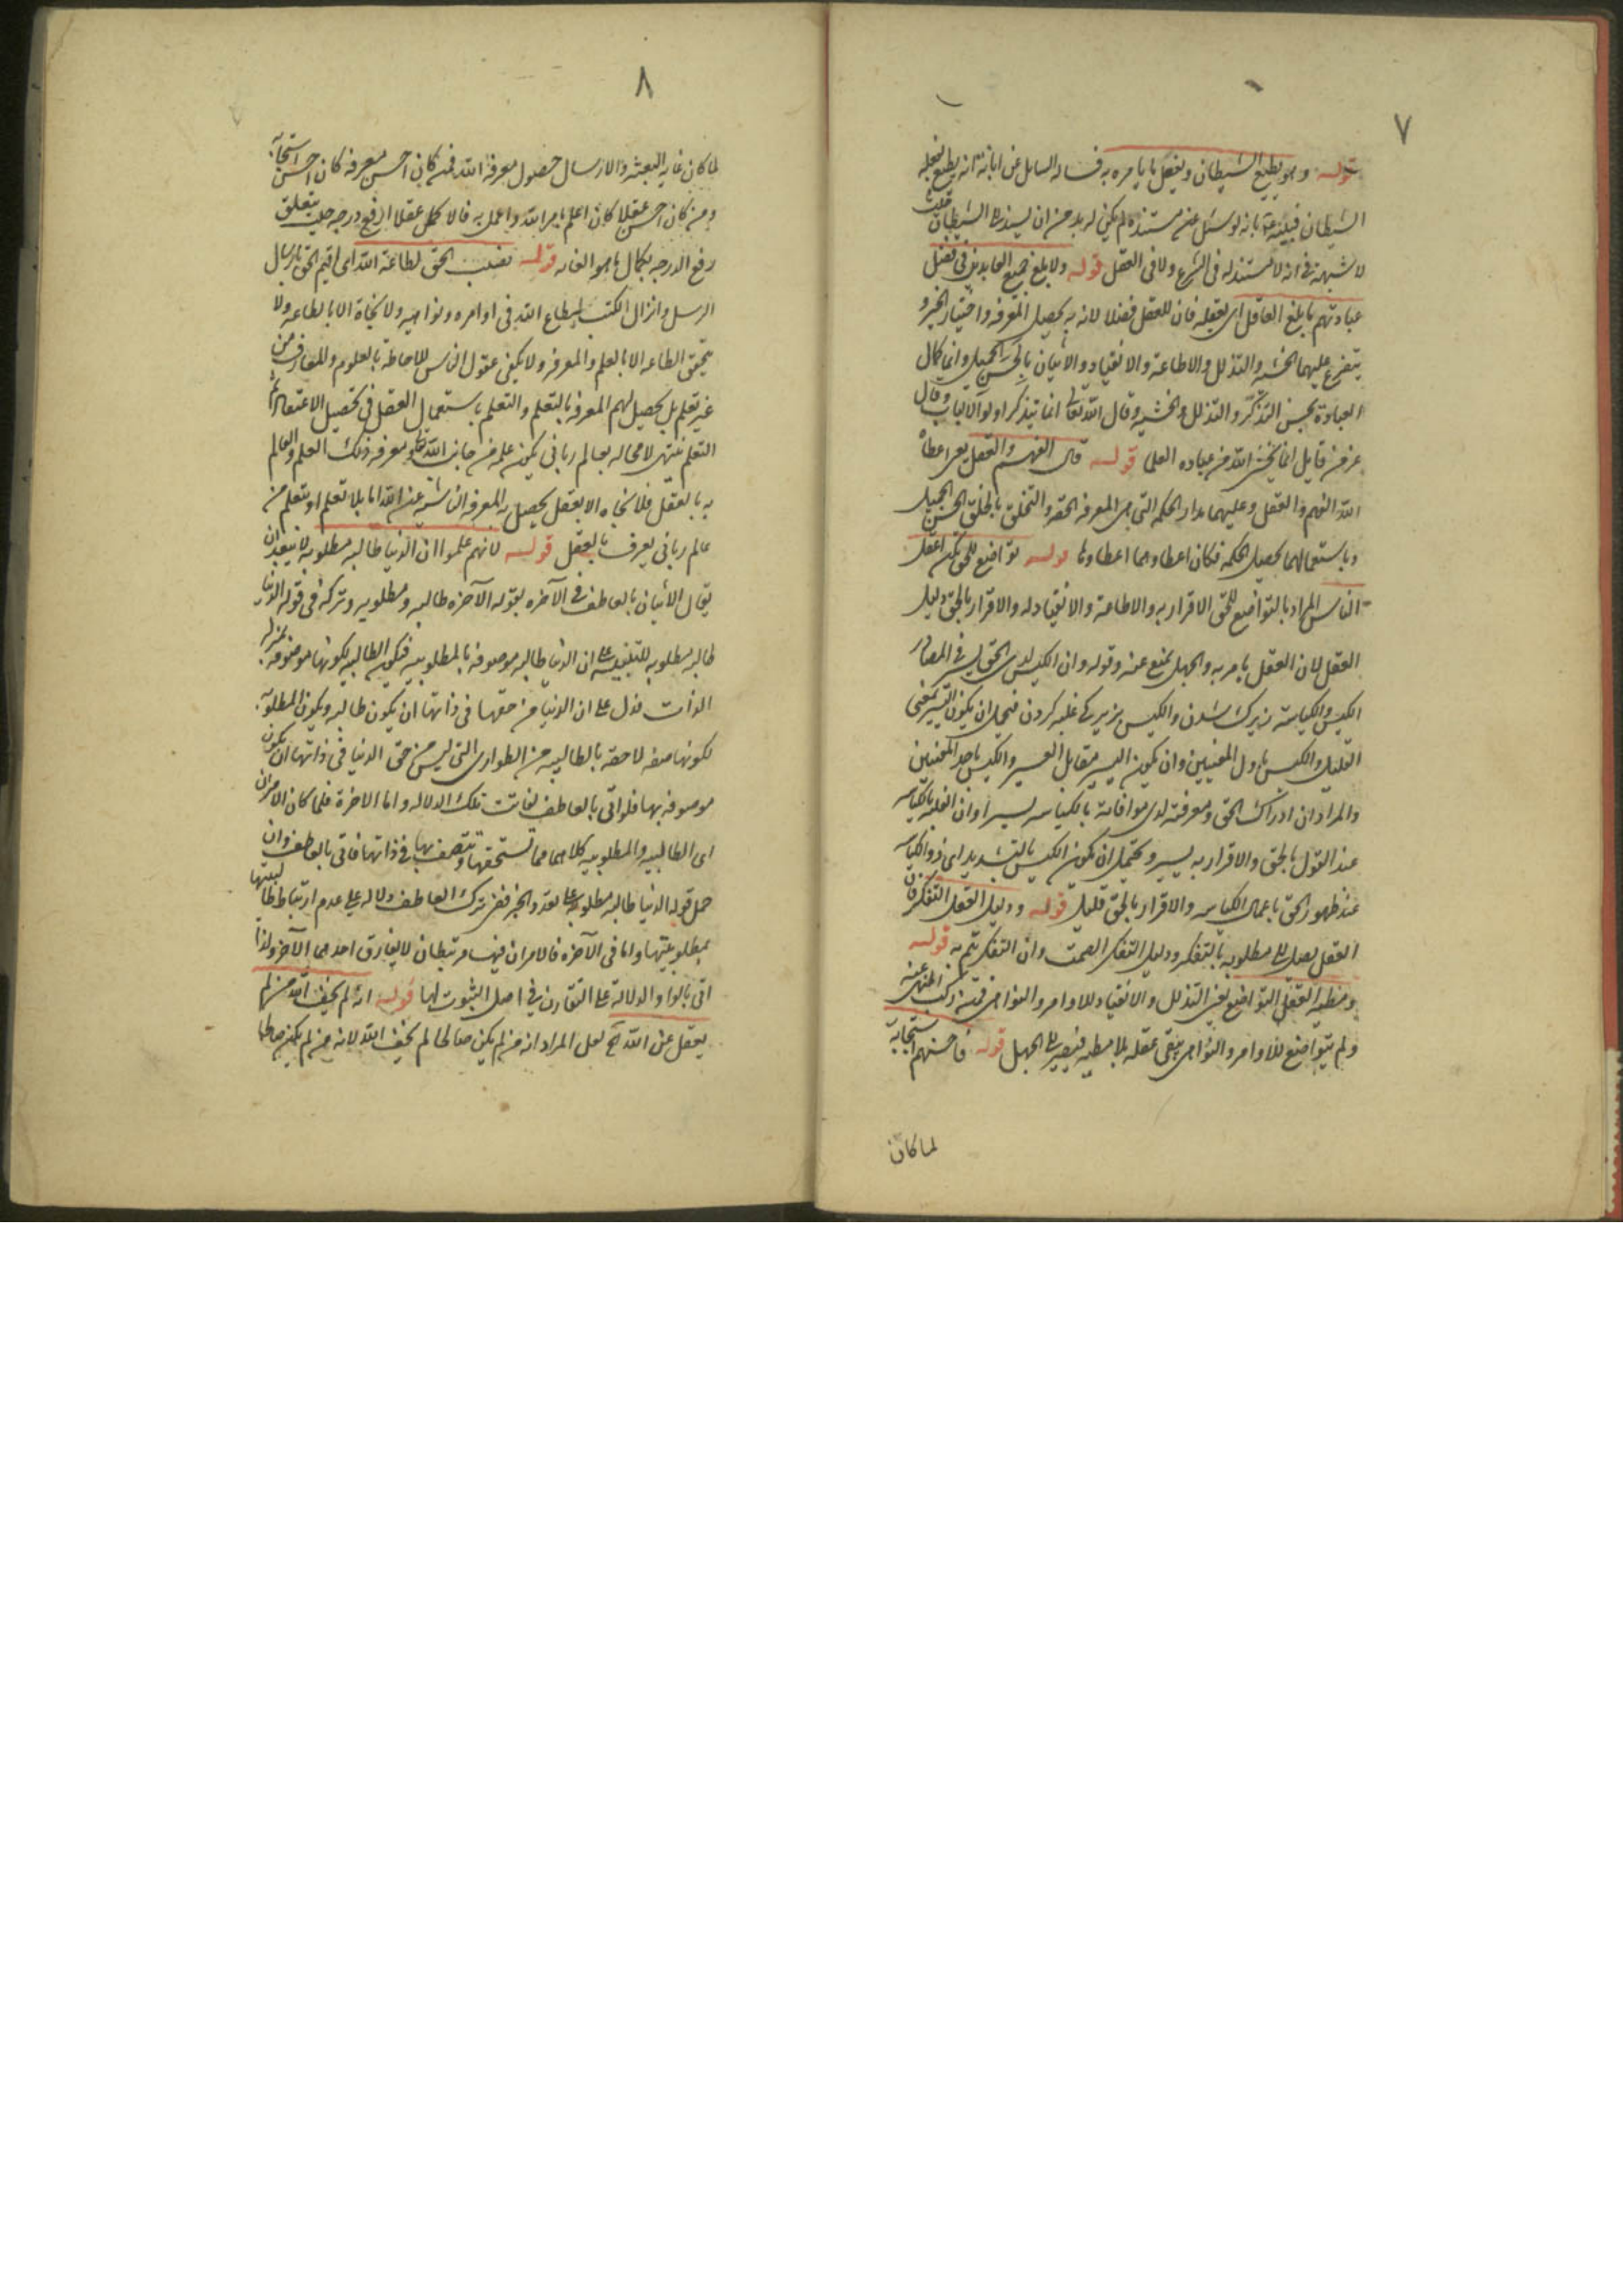 ٧
قوله وهو يطيع الشيطان ويفعل ما يامره به فساله السايل عن ابانة انه يطيع بفعله
الشيطان فبينه بانه لو سئل عن مستنده لم يكن له بد من ان يسنده الى الشيطان حيث
لا شبهة في انه لا مستند له في الشرع ولا في العقل قوله ولا بلغ جميع العابدين في فضل
عبادتهم ما بلغ العاقل اى بعقله فان للعقل فضلا لانه به يحصل المعرفه واختيار الخير و
يتفرع عليهما الخشيه والتذلل والاطاعة والانقياد والاتيان بالحسن الجميل وانما كمال
العبادة بحسن التذكر والتذلل والخشيه وقال الله تعالى انما يتذكر اولو الالباب وقال
عز من قايل انما يخشى الله من عباده العلما قوله قال الفهم والعقل يعنى اعطاه
الله الفهم والعقل وعليهما مدار الحكمه التى هى المعرفه الحقه والتخلق بالخلق الحسن الجميل
وباستعمالهما يحصل الحكمه فكان اعطاوهما اعطاوها قوله تواضع للحق تكن اعقل
الناس المراد بالتواضع للحق الاقرار به والاطاعة والانقياد له والاقرار بالحق دليل
العقل لان العقل يامر به والجهل يمنع عنه وقوله وان الكيس لدى الحق يسير في المصادر
الكيس والكياسة زيرك شدن والكيس بزيركى غلبه كردن فيحتمل ان يكون اليسير بمعنى
القليل والكيس باول المعنيين وان يكون اليسير مقابل العسير والكيس باحد المعنيين
والمراد ان ادراك الحق ومعرفته لدى موافاته بالكياسه يسير او ان الغلبة بالكياسه
عند القول بالحق والاقرار به يسير ويحتمل ان يكون الكيس بالتشديد اى ذو الكياسه
عند ظهور الحق باعمال الكياسه والاقرار بالحق قليل قوله ودليل العقل التفكر فان
العقل يصل الى مطلوبه بالتفكر ودليل التفكر الصمت وان التفكر يتم به قوله
ومطية العقل التواضع يعنى التذلل والانقياد للاوامر والنواهى فمن ركب المنهى عنه
ولم يتواضع للاوامر والنواهى يبقى عقله بلا مطيه فيصير الى الجهل قوله فاحسنهم استجابة
لما كان
٨
لما كان غايه البعثه والارسال حصول معرفة الله فمن كان احسن معرفه كان احسن استجابة
ومن كان احسن عقلا كان اعلم بامر الله واعمل به فالاكمل عقلا ارفع درجه حيث يتعلق
رفع الدرجه بكمال ما هو الغايه قوله نصب الحق لطاعة الله اى اقيم الحق بارسال
الرسل وانزال الكتب ليطاع الله في اوامره ونواهيه ولا نجاة الا بالطاعه ولا
يتحقق الطاعه الا بالعلم والمعرفه ولا يكفى عقول الناس للاحاطة بالعلوم والمعارف من
غير تعلم بل يحصل لهم المعرفه بالتعلم والتعلم باستعمال العقل في تحصيل الاعتقاد ثم
التعلم ينتهى لا محاله بعالم ربانى يكون علمه من جانب الله تعالى ومعرفه ذلك العلم والعالم
به بالعقل فلا نجاه الا بعقل يحصل به المعرفه الناشيه عن الله اما بلا تعلم او بتعلم من
عالم ربانى يعرف بالعقل قوله لانهم علموا ان الدنيا طالبه مطلوبه لا يبعد ان
يقال الاتيان بالعاطف في الآخره بقوله الآخره طالبه ومطلوبه وتركه في قوله الدنيا
طالبه مطلوبه للتنبيه على ان الدنيا طالبه موصوفه بالمطلوبيه فيكون الطالبيه لكونها موصوفه بمنزلة
الذات فدل على ان الدنيا من حقها في ذاتها ان يكون طالبه ويكون المطلوبيه
لكونها صفه لاحقه بالطالبيه من الطوارى التى ليس من حق الدنيا في ذاتها ان يكون
موصوفه بها فلو اتى بالعاطف لفاتت تلك الدلاله واما الاخرة فلما كان الامران
اى الطالبيه والمطلوبيه كلاهما مما تستحقها وتتصف بها في ذاتها فاتى بالعاطف وان
حمل قوله الدنيا طالبه مطلوبه على تعدد الخبر ففى ترك العاطف دلاله على عدم ارتباط طالبيتها
بمطلوبيتها واما في الآخره فالامران فيها مرتبطان لا يفارق احدهما الآخر ولذا
اتى بالواو الدلالة على التقارن في اصل الثبوت لها قوله انه لم يخف الله من لم
يعقل عن الله الخ لعل المراد انه من لم يكن صالحا لم يخف الله لانه من لم يكن صالحا